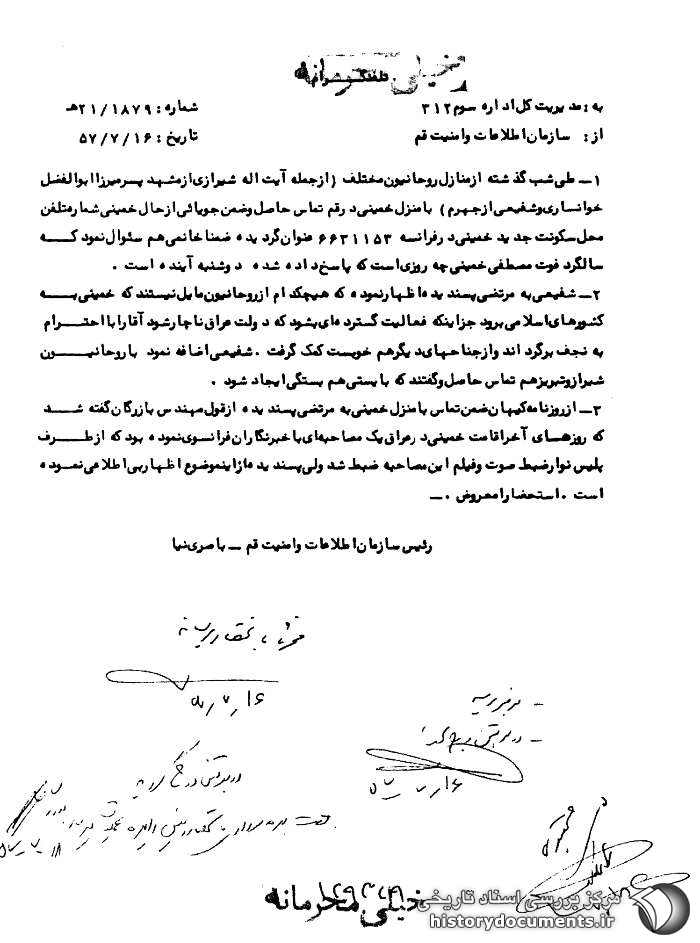 خیلی محرمانه
تلفنگرام
به: مدیریت کل اداره سوم ۳۱۲
شماره: ۲۱/۱۸۷۹هـ
از: سازمان اطلاعات وامنیت قم
تاریخ: ۵۷/۷/۱۶
۱ــ طی شب گذشته ازمنازل روحانیون مختلف (ازجمله آیت اله شیرازی ازمشهد پسرمیرزا ابوالفضل
خوانساری وشفیعی ازجهرم) بامنزل خمینی درقم تماس حاصل وضمن جویائی ازحال خمینی شماره تلفن
محل سکونت جدید خمینی درفرانسه ۶۶۳۱۱۵۳ عنوان گردیده ضمنا خانمی هم سئوال نمود کــه
سالگرد فوت مصطفی خمینی چه روزی است که پاسخ داده شده دوشنبه آینده است .
۲ــ شفیعی به مرتضی پسندیده اظهارنموده که هیچکدام ازروحانیون مایل نیستند که خمینی بــه
کشورهای اسلامی برود جزاینکه فعالیت گسترده ای بشود که دولت عراق ناچارشود آقارا با احتــرام
به نجف برگرداند وازجناحهای دیگرهم خوبست کمک گرفت .شفیعی اضافه نمود باروحانیــون
شیرازوتبریزهم تماس حاصل وگفتند که بایستی هم بستگی ایجاد شود .
۳ــ ازروزنامه کیهان ضمن تماس بامنزل خمینی به مرتضی پسندیده ازقول مهندس بازرگان گفته شــد
که روزهــای آخراقامت خمینی درعراق یک مصاحبه ای باخبرنگاران فرانسوی نموده بود که ازطــرف
پلیس نوارضبط صوت وفیلم این مصاحبه ضبط شد ولی پسندیده ازاینموضوع اظهاربی اطلاعی نمــوده
است .استحضارا معروض .ــ
رئیس سازمان اطلاعات وامنیت قم ــ باصری نیا
۵۷/۷/۱۶
۵۷/۷/۱۶
۵۷/۷/۱۸
خیلی محرمانه
مرکز بررسی اسناد تاریخی
historydocuments.ir